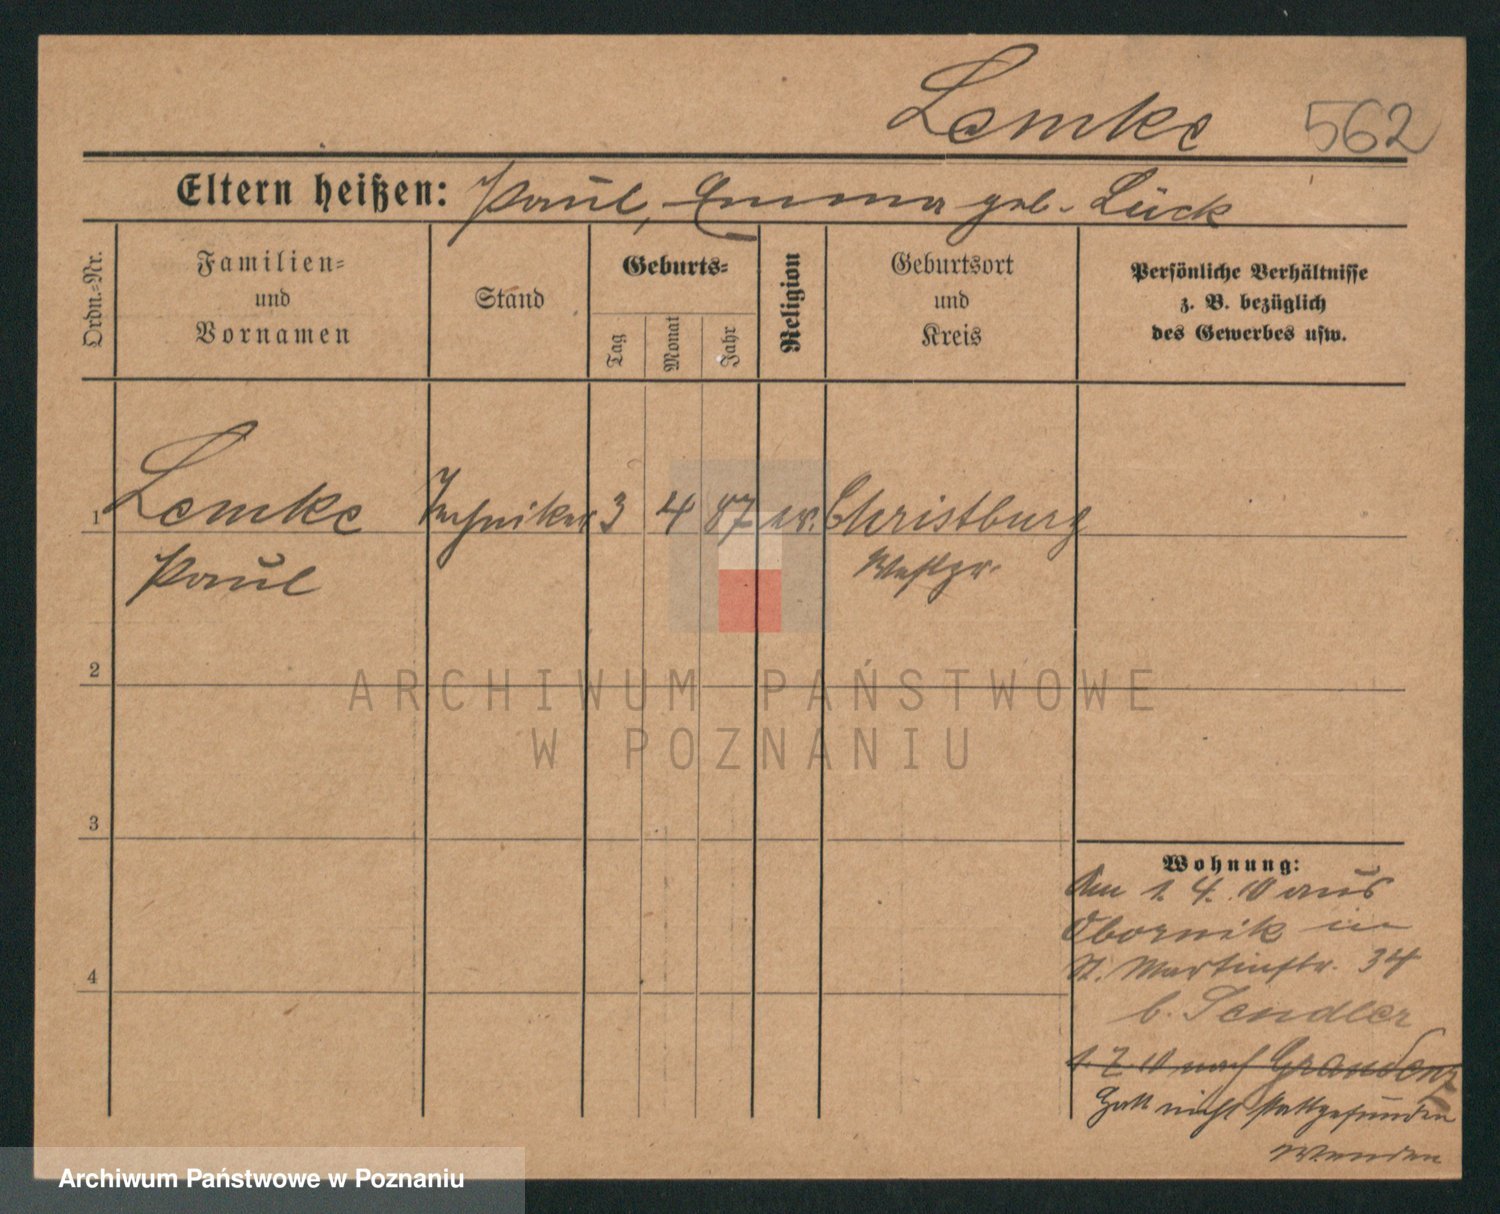 Lemke 562
Eltern heißen: Paul, Emma geb. Lück
Ordn.-Nr.
Familien-
und
Vornamen
Stand
Geburts-
Tag
Monat
Jahr
Religion
Geburtsort
und
Kreis
Persönliche Verhältnisse
z. B. bezüglich
des Gewerbes usw.
1 Lemke Techniker 3 4 87 ev. Christburg
Paul Westpr.
2
ARCHIWUM PAŃSTWOWE
W POZNANIU
3
Wohnung:
Am 1. 4. 10 aus
Obornik in
St. Martinstr. 34
b. Sendler
4
1. 7. 10 nach Graudenz
Hat nicht stattgefunden
Wenden
Archiwum Państwowe w Poznaniu